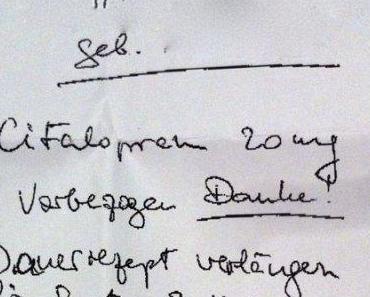 geb.
Citalopram 20 mg
Vorbezogen Danke!
Dauerrezept verlängern